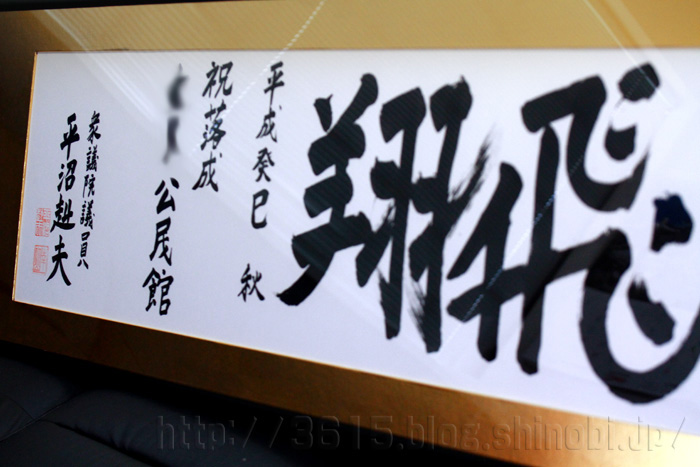 飛翔
平成癸巳 秋
祝落成
公民館
衆議院議員
平沼赳夫
http://3615.blog.shinobi.jp/